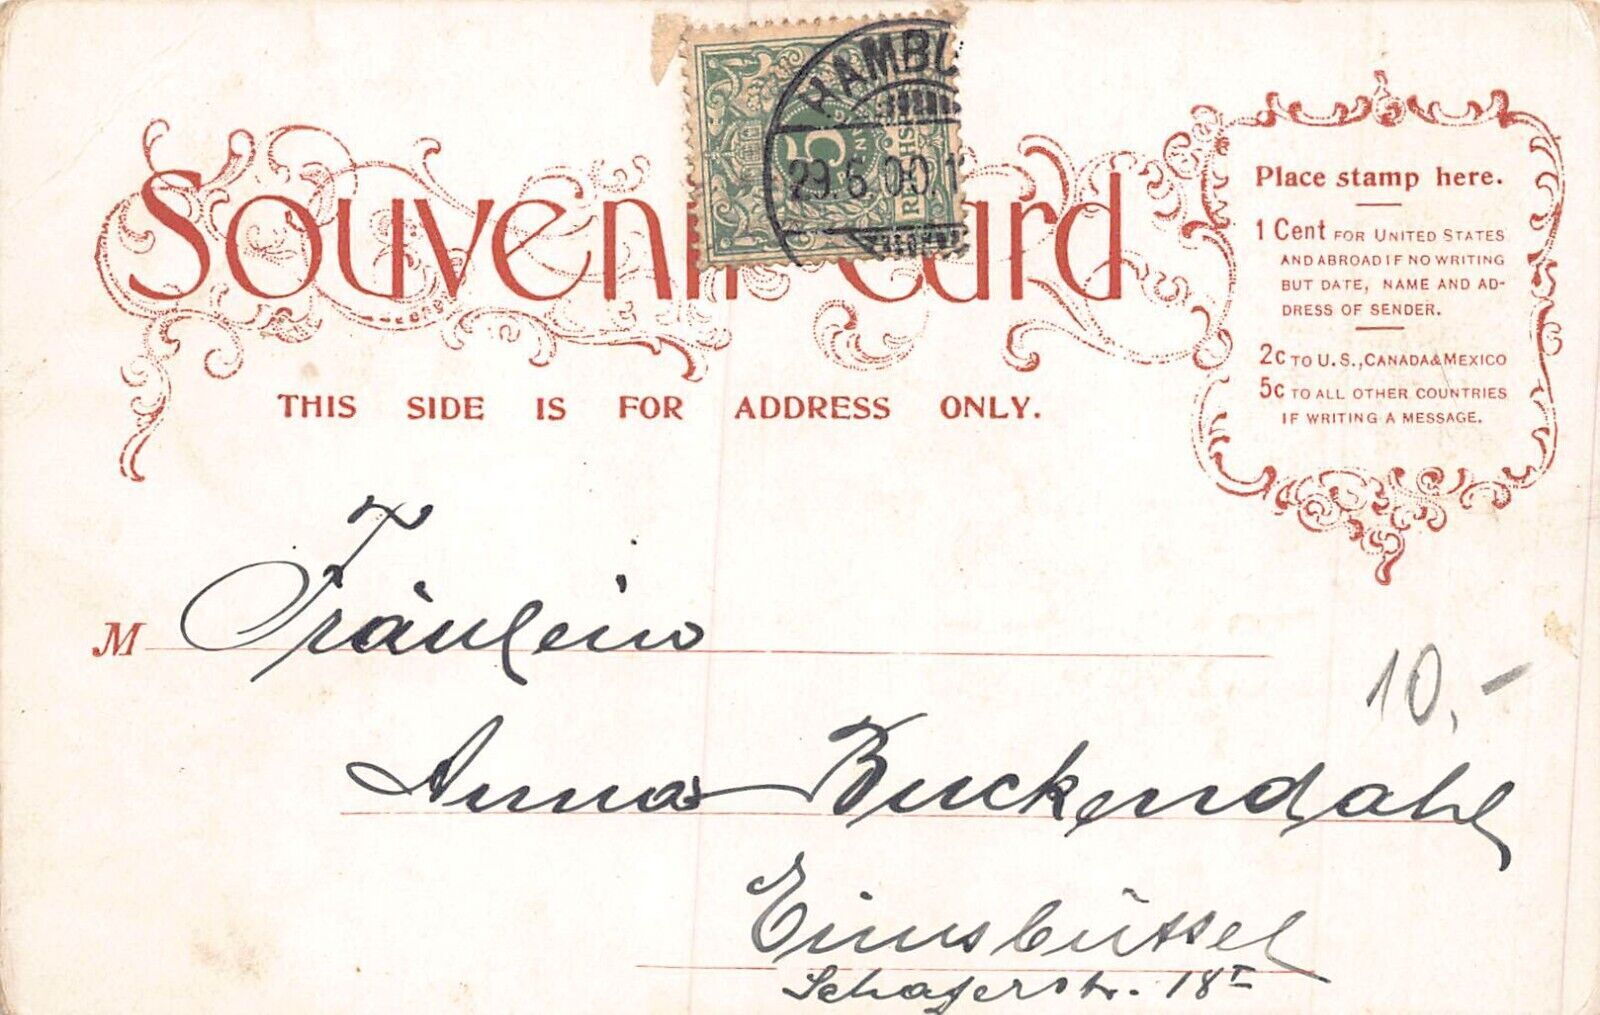 HAMBU
29.6.00.1
5
REICHSP
Souvenir Card
THIS SIDE IS FOR ADDRESS ONLY.
Place stamp here.
1 Cent FOR UNITED STATES
AND ABROAD IF NO WRITING
BUT DATE, NAME AND AD-
DRESS OF SENDER.
2c TO U.S., CANADA & MEXICO
5c TO ALL OTHER COUNTRIES
IF WRITING A MESSAGE.
M Fräulein
10,-
Anna Buckendahl
Eimsbüttel
Schäferstr. 18 I